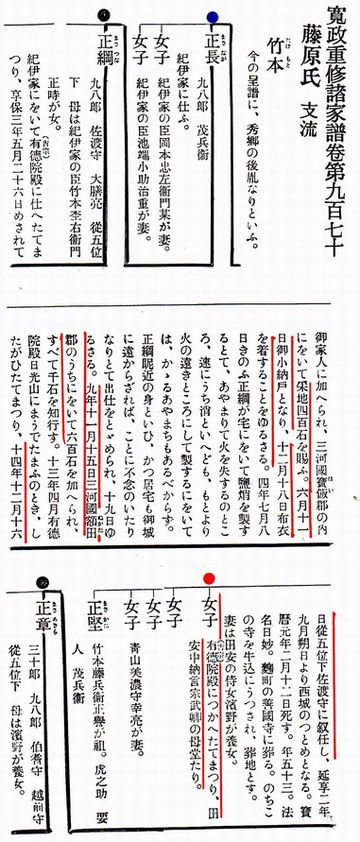 寛政重修諸家譜卷第九百七十
藤原氏 支流
竹本
たけもと
今の呈譜に、秀郷の後胤なりといふ。
正長
まさなが
九八郎 茂兵衞
紀伊家に仕ふ。
女子
紀伊家の臣岡本忠左衞門某が妻。
女子
紀伊家の臣池端小助治重が妻。
正綱
まさつな
九八郎 佐渡守 大膳亮 從五位
下 母は紀伊家の臣竹本杢右衞門
正時が女。
紀伊家にをいて有德院殿に仕へたてま
(吉宗)
つり、享保三年五月二十六日めされて
御家人に加へられ、三河國寶飯郡の内
にをいて采地四百石を賜ふ。六月十一
日御小納戸となり、十二月十八日布衣
を着することをゆるさる。四年七月八
日きのふ正綱が宅にをいて鹽焇を製す
るとて、あやまりて火を失するのとこ
ろ、速にうち消といへども、もとより
火の遠きところにして製するにをいて
は、かゝるあやまちもあるべからず。
正綱昵近の身といひ、かつ居宅も御城
に遠からざれば、ことに不念のいたり
なりとて出仕をとゞめられ、十九日ゆ
るさる。九年十一月十五日三河國額田
郡のうちにをいて六百石を加へられ、
すべて千石を知行す。十三年四月有德
院殿日光山にまうでたまふのとき、し
たがひたてまつり、十四年十二月十六
日從五位下佐渡守に叙任し、延享二年
九月朔日より西城のつとめとなる。寶
暦元年二月十二日死す。年五十三。法
名日妙。麴町の善國寺に葬る。のちこ
の寺を牛込にうつされ、葬地とす。
妻は田安の侍女濱野が養女。
女子
有德院殿につかへたてまつり、田
安中納言宗武卿の母堂たり。
女子
女子
青山美濃守幸亮が妻。
女子
正堅
まさかた
竹本藤兵衞正譽が祖。虎之助 要
人 茂兵衞
正章
まさあきら
三十郎 九八郎 伯耆守 越前守
從五位下 母は濱野が養女。